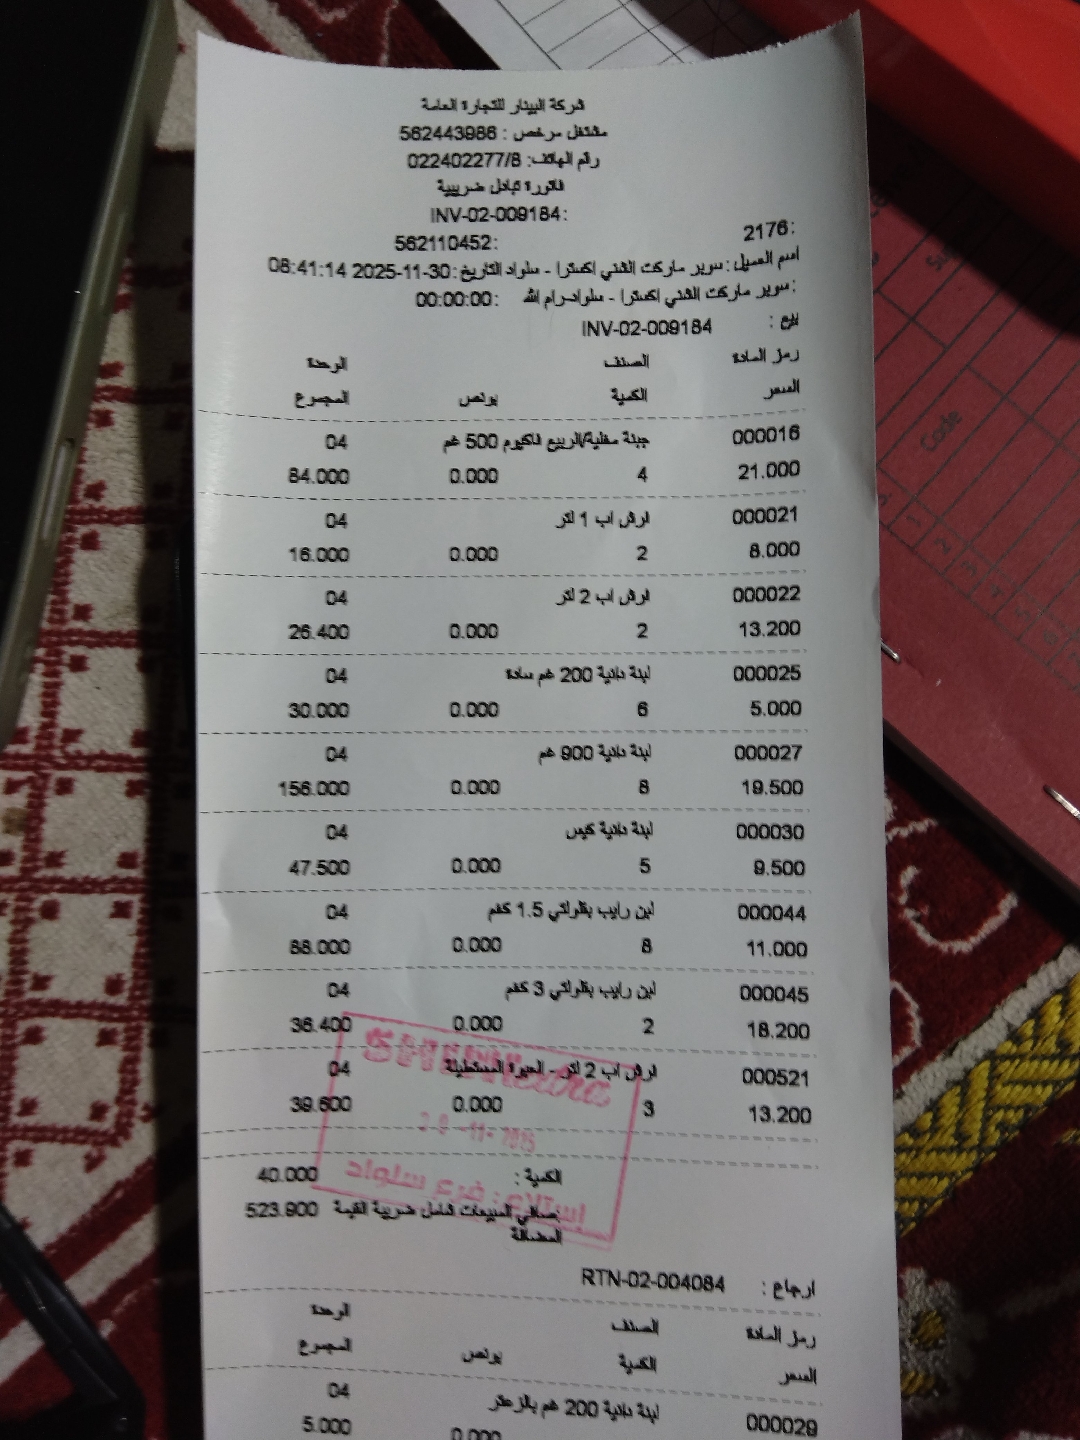 شركة البينار للتجارة العامة
مشتغل مرخص : 562443986
رقم الهاتف: 022402277/8
فاتورة تبادل ضريبية
INV-02-009184:
2176: 562110452:
اسم العميل: سوبر ماركت الشني اكسترا - سلواد التاريخ: 30-11-2025 08:41:14
: سوبر ماركت الشني اكسترا - سلواد-رام الله 00:00:00:
بيع : INV-02-009184
رمز المادة الصنف الوحدة
السعر الكمية بونص المجموع
000016 جبنة مغلية/الربيع فاكيوم 500 غم 04
21.000 4 0.000 84.000
000021 فرش اب 1 لتر 04
8.000 2 0.000 16.000
000022 فرش اب 2 لتر 04
13.200 2 0.000 26.400
000025 لبنة نادية 200 غم سادة 04
5.000 6 0.000 30.000
000027 لبنة نادية 900 غم 04
19.500 8 0.000 156.000
000030 لبنة نادية كيس 04
9.500 5 0.000 47.500
000044 لبن رايب بقلولتي 1.5 كغم 04
11.000 8 0.000 88.000
000045 لبن رايب بقلولتي 3 كغم 04
18.200 2 0.000 36.400
000521 فرش اب 2 لتر - العبوة المستطيلة 04
13.200 3 0.000 39.600
-11- 2025
استلام : فرع سلواد
الكمية : 40.000
صافي المبيعات شامل ضريبة القيمة 523.900
المضافة
ارجاع : RTN-02-004084
رمز المادة الصنف الوحدة
السعر الكمية بونص المجموع
000029 لبنة نادية 200 غم بالزعتر 04
0.000 5.000
Code